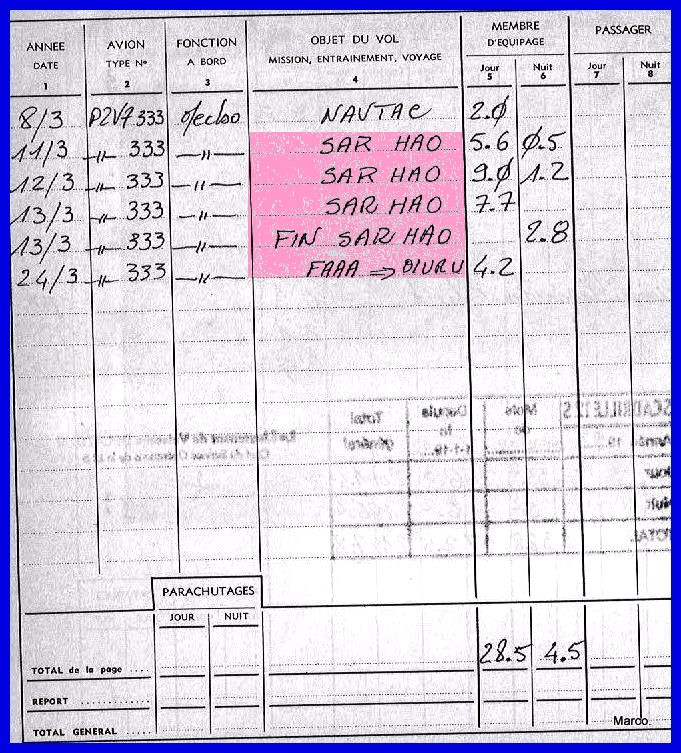 ANNEE AVION FONCTION OBJET DU VOL MEMBRE D'EQUIPAGE PASSAGER
DATE TYPE N° A BORD MISSION, ENTRAINEMENT, VOYAGE Jour Nuit Jour Nuit
1 2 3 4 5 6 7 8
8/3 P2V7 333 Mecbo NAVTAC 2.0
11/3 -〃- 333 -〃- SAR HAO 5.6 0.5
12/3 -〃- 333 -〃- SAR HAO 9.0 1.2
13/3 -〃- 333 -〃- SAR HAO 7.7
13/3 -〃- 333 -〃- FIN SAR HAO 2.8
24/3 -〃- 333 -〃- FAAA ⇒ 4.2
PARACHUTAGES
JOUR NUIT
TOTAL de la page .... 28.5 4.5
REPORT ............
TOTAL GENERAL ....
Marco.